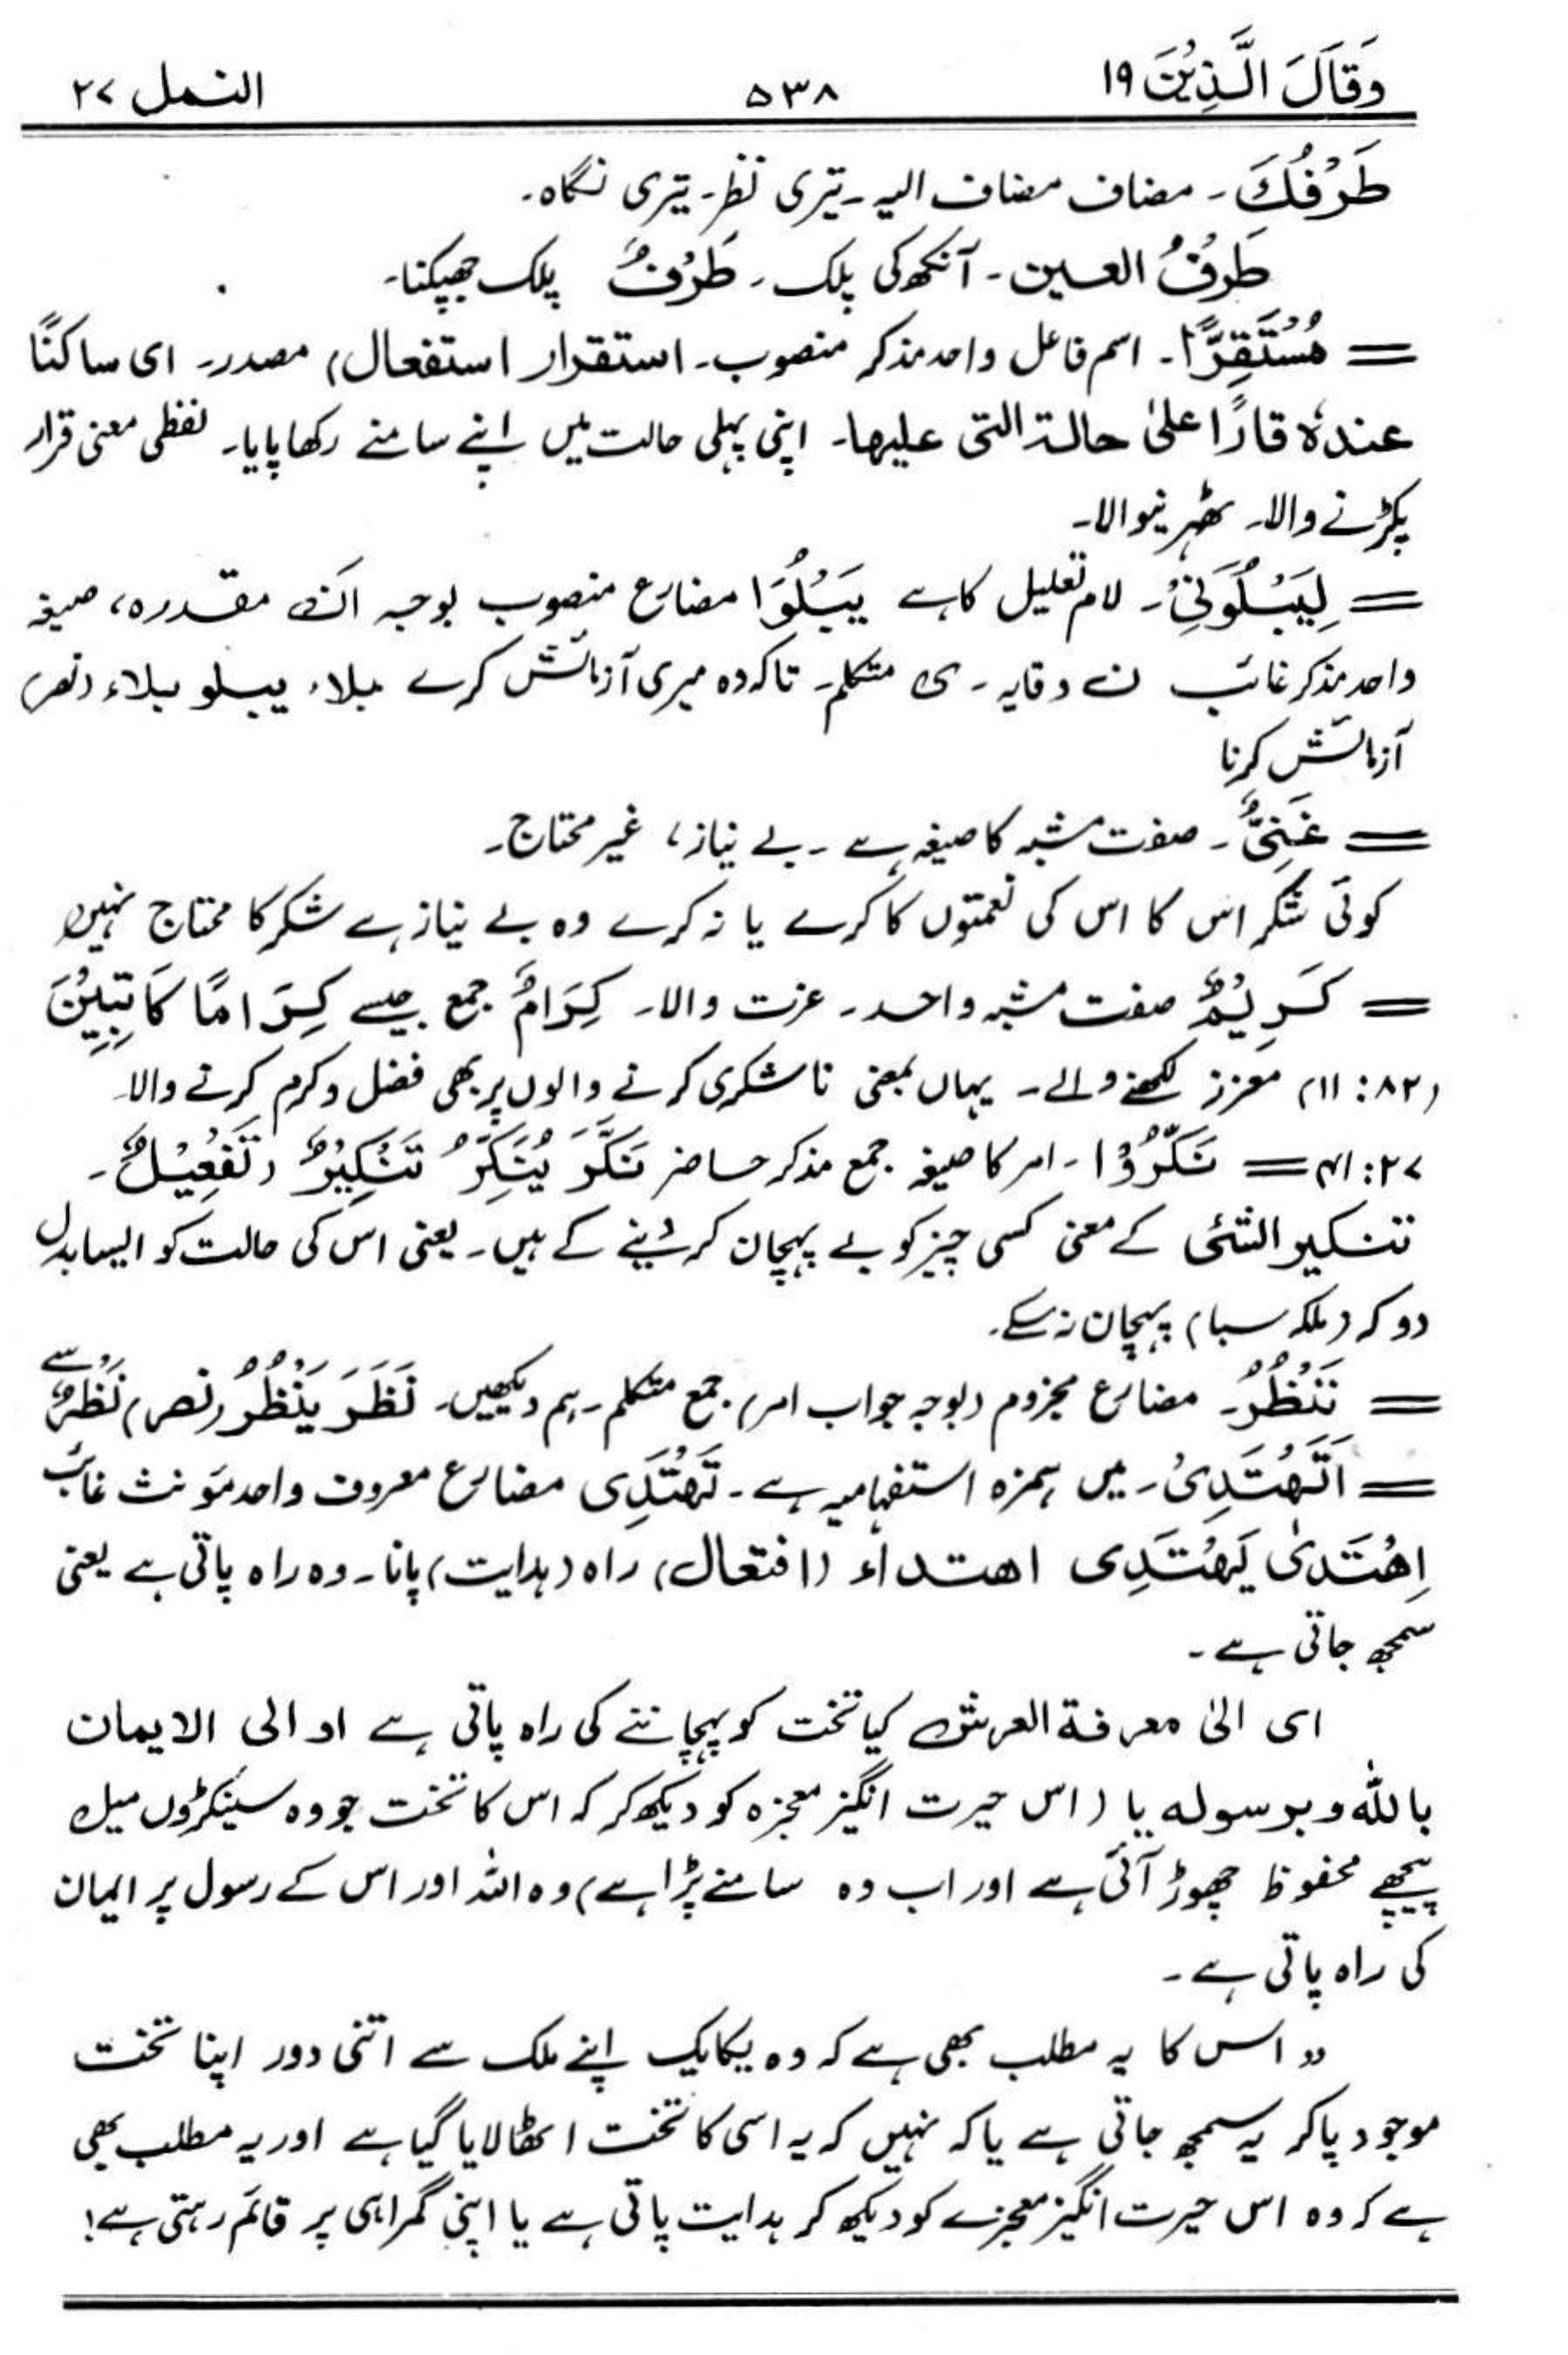 وَقَالَ الَّذِيْنَ ۱۹ ۵۳۸ النمل ۲۷
طَرْفُكَ ۔ مضاف مضاف الیہ ۔ تیری نظر۔ تیری نگاہ۔
طَرْفُ العین ۔ آنکھ کی پلک ۔ طَرْفٌ پلک جھپکنا۔
= مُسْتَقِرًّا ۔ اسم فاعل واحد مذکر منصوب۔ استقرار استفعال) مصدر۔ ای ساکنًا
عندہٗ قارًا علیٰ حالۃ التی علیھا۔ اپنی پہلی حالت میں اپنے سامنے رکھا پایا۔ لفظی معنی قرار
پکڑنے والا۔ ٹھہرنیوالا۔
= لِيَبْلُوَنِيْ ۔ لام تعلیل کا ہے يَبْلُوَا مضارع منصوب بوجہ اَن مقدرہ، صیغہ
واحد مذکر غائب ن وقایہ ۔ ی متکلم۔ تاکہ وہ میری آزمائش کرے بلاء یبلو بلاء (نصر)
آزمائش کرنا
= غَنِيٌّ ۔ صفت مشبہ کا صیغہ ہے ۔ بے نیاز، غیر محتاج۔
کوئی شکر اس کا اس کی نعمتوں کا کرے یا نہ کرے وہ بے نیاز ہے شکر کا محتاج نہیں
= كَرِيْمٌ صفت مشبہ واحد ۔ عزت والا۔ كِرَامٌ جمع جیسے كِرَامًا كَاتِبِيْنَ
(۸۲: ۱۱) معزز لکھنے والے ۔ یہاں بمعنی ناشکری کرنے والوں پر بھی فضل وکرم کرنے والا۔
۲۷: ۴۱ = نَكِّرُوْا ۔ امر کا صیغہ جمع مذکر حاضر نَكَّرَ يُنَكِّرُ تَنْكِيْرٌ (تَفْعِيْلٌ ۔
تنکیر الشئی کے معنی کسی چیز کو بے پہچان کر دینے کے ہیں ۔ یعنی اس کی حالت کو ایسا بدل
دو کہ (ملکہ سبا) پہچان نہ سکے۔
= نَنْظُرْ۔ مضارع مجزوم (بوجہ جواب امر) جمع متکلم ۔ ہم دیکھیں۔ نَظَرَ يَنْظُرُ (نصر) نَظْرٌ سے
= اَتَهْتَدِيْ ۔ میں ہمزہ استفہامیہ ہے ۔ تَهْتَدِی مضارع معروف واحد مؤنث غائب
اِهْتَدٰی يَهْتَدِی اھتداء (افتعال) راہ (ہدایت) پانا ۔ وہ راہ پاتی ہے یعنی
سمجھ جاتی ہے ۔
ای الیٰ معرفۃ العرش کیا تخت کو پہچاننے کی راہ پاتی ہے او الی الایمان
باللّٰہ وبرسولہ یا (اس حیرت انگیز معجزہ کو دیکھ کر کہ اس کا تخت جو وہ سینکڑوں میل
پیچھے محفوظ چھوڑ آئی ہے اور اب وہ سامنے پڑا ہے) وہ اللہ اور اس کے رسول پر ایمان
کی راہ پاتی ہے ۔
” اس کا یہ مطلب بھی ہے کہ وہ یکایک اپنے ملک سے اتنی دور اپنا تخت
موجود پا کر یہ سمجھ جاتی ہے یا کہ نہیں کہ یہ اسی کا تخت اٹھا لایا گیا ہے اور یہ مطلب بھی
ہے کہ وہ اس حیرت انگیز معجزے کو دیکھ کر ہدایت پاتی ہے یا اپنی گمراہی پر قائم رہتی ہے!